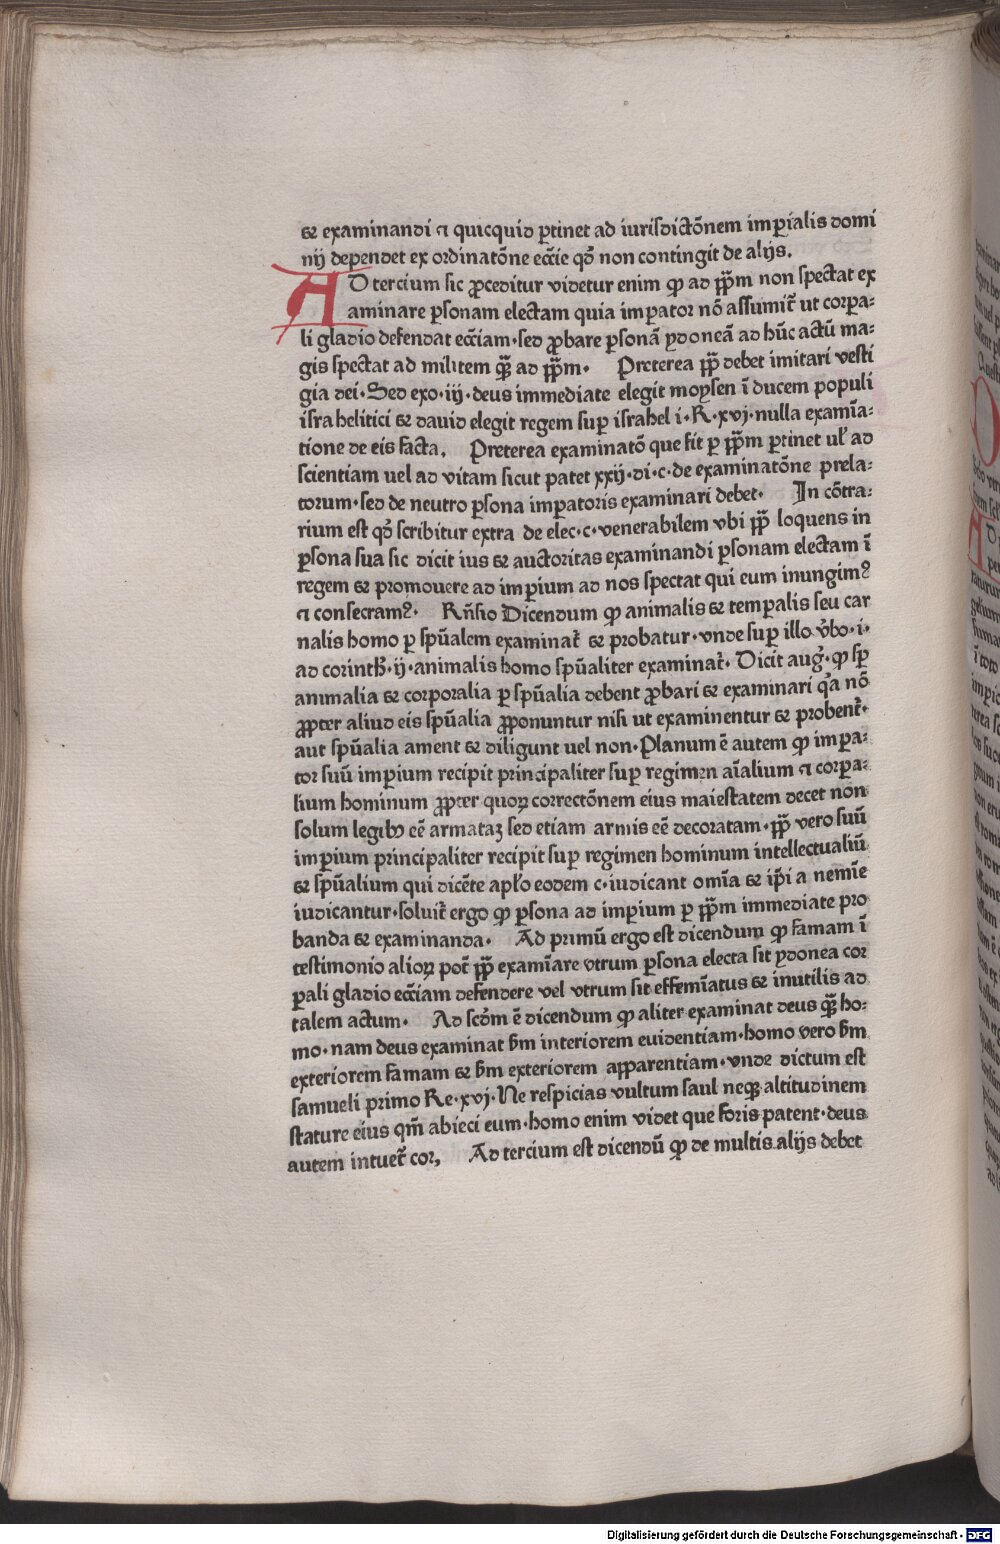 & examinandi ⁊ quicquid ꝑtinet ad iurisdictõnem imꝑialis domi
nij dependet ex ordinatõne eccĩe qđ non contingit de alijs.
AD tercium sic ꝓceditur videtur enim ꝙ ad pp̃m non spectat ex
aminare ꝑsonam electam quia imꝑator nõ assumit̃ ut corpa⸗
li gladio defendat eccĩam·sed ꝓbare ꝑsonã ydoneã ad hũc actũ ma⸗
gis spectat ad militem qȝ̃ ad pp̃m· Preterea pp̃ debet imitari vesti
gia dei·Sed exo·iij·deus immediate elegit moysen ĩ ducem populi
israhelitici & dauid elegit regem suꝑ israhel i·R·xvj·nulla examĩa⸗
tione de eis facta. Preterea examinatõ que fit ꝑ pp̃m ꝑtinet ul̃ ad
scientiam uel ad vitam sicut patet xxij·di·c·de examinatõne prela⸗
torum·sed de neutro ꝑsona imꝑatoris examinari debet· In cõtra⸗
rium est qđ scribitur extra de elec·c·venerabilem vbi pp̃ loquens in
ꝑsona sua sic dicit ius & auctoritas examinandi ꝑsonam electam ĩ
regem & promouere ad imꝑium ad nos spectat qui eum inungimꝰ
⁊ consecramꝰ· Rñsio Dicendum ꝙ animalis & temꝑalis seu car
nalis homo ꝑ spũalem examinat̃ & probatur·vnde suꝑ illo v̄bo·i·
ad corinth̃·ij·animalis homo spũaliter examinat̃·Dicit aug̃·ꝙ sꝑ
animalia & corporalia ꝑ spũalia debent ꝓbari & examinari qͥa nõ
ꝓpter aliud eis spũalia ꝓponuntur nisi ut examinentur & probent̃·
aut spũalia ament & diligunt uel non·Planum ẽ autem ꝙ imꝑa⸗
tor suũ imꝑium recipit principaliter suꝑ regimen aĩalium ⁊ corꝑa⸗
lium hominum ꝓpter quoꝝ correctõnem eius maiestatem decet non
solum legibꝰ eẽ armataȝ sed etiam armis eẽ decoratam·pp̃ vero suũ
imꝑium principaliter recipit suꝑ regimen hominum intellectualiũ
& spũalium qui dicẽte apl̃o eodem c·iudicant omĩa & ip̃i a nemĩe
iudicantur·soluit̃ ergo ꝙ ꝑsona ad imꝑium ꝑ pp̃m immediate pro
banda & examinanda· Ad primũ ergo est dicendum ꝙ famam ĩ
testimonio alioꝝ pot̃ pp̃ examĩare vtrum ꝑsona electa sit ydonea cor
ꝑali gladio eccĩam defendere vel vtrum sit effemĩatus & inutilis ad
talem actum· Ad scd̃m ẽ dicendum ꝙ aliter examinat deus qȝ̃ ho⸗
mo·nam deus examinat ẜm interiorem euidentiam·homo vero ẜm
exteriorem famam & ẜm exteriorem apparentiam·vnde dictum est
samueli primo Re·xvj·Ne respicias vultum saul neqȝ altitudinem
stature eius qm̃ abieci eum·homo enim videt que foris patent·deus
autem intuet̃ cor, Ad tercium est dicendũ ꝙ de multis alijs debet
Digitalisierung gefördert durch die Deutsche Forschungsgemeinschaft - DFG